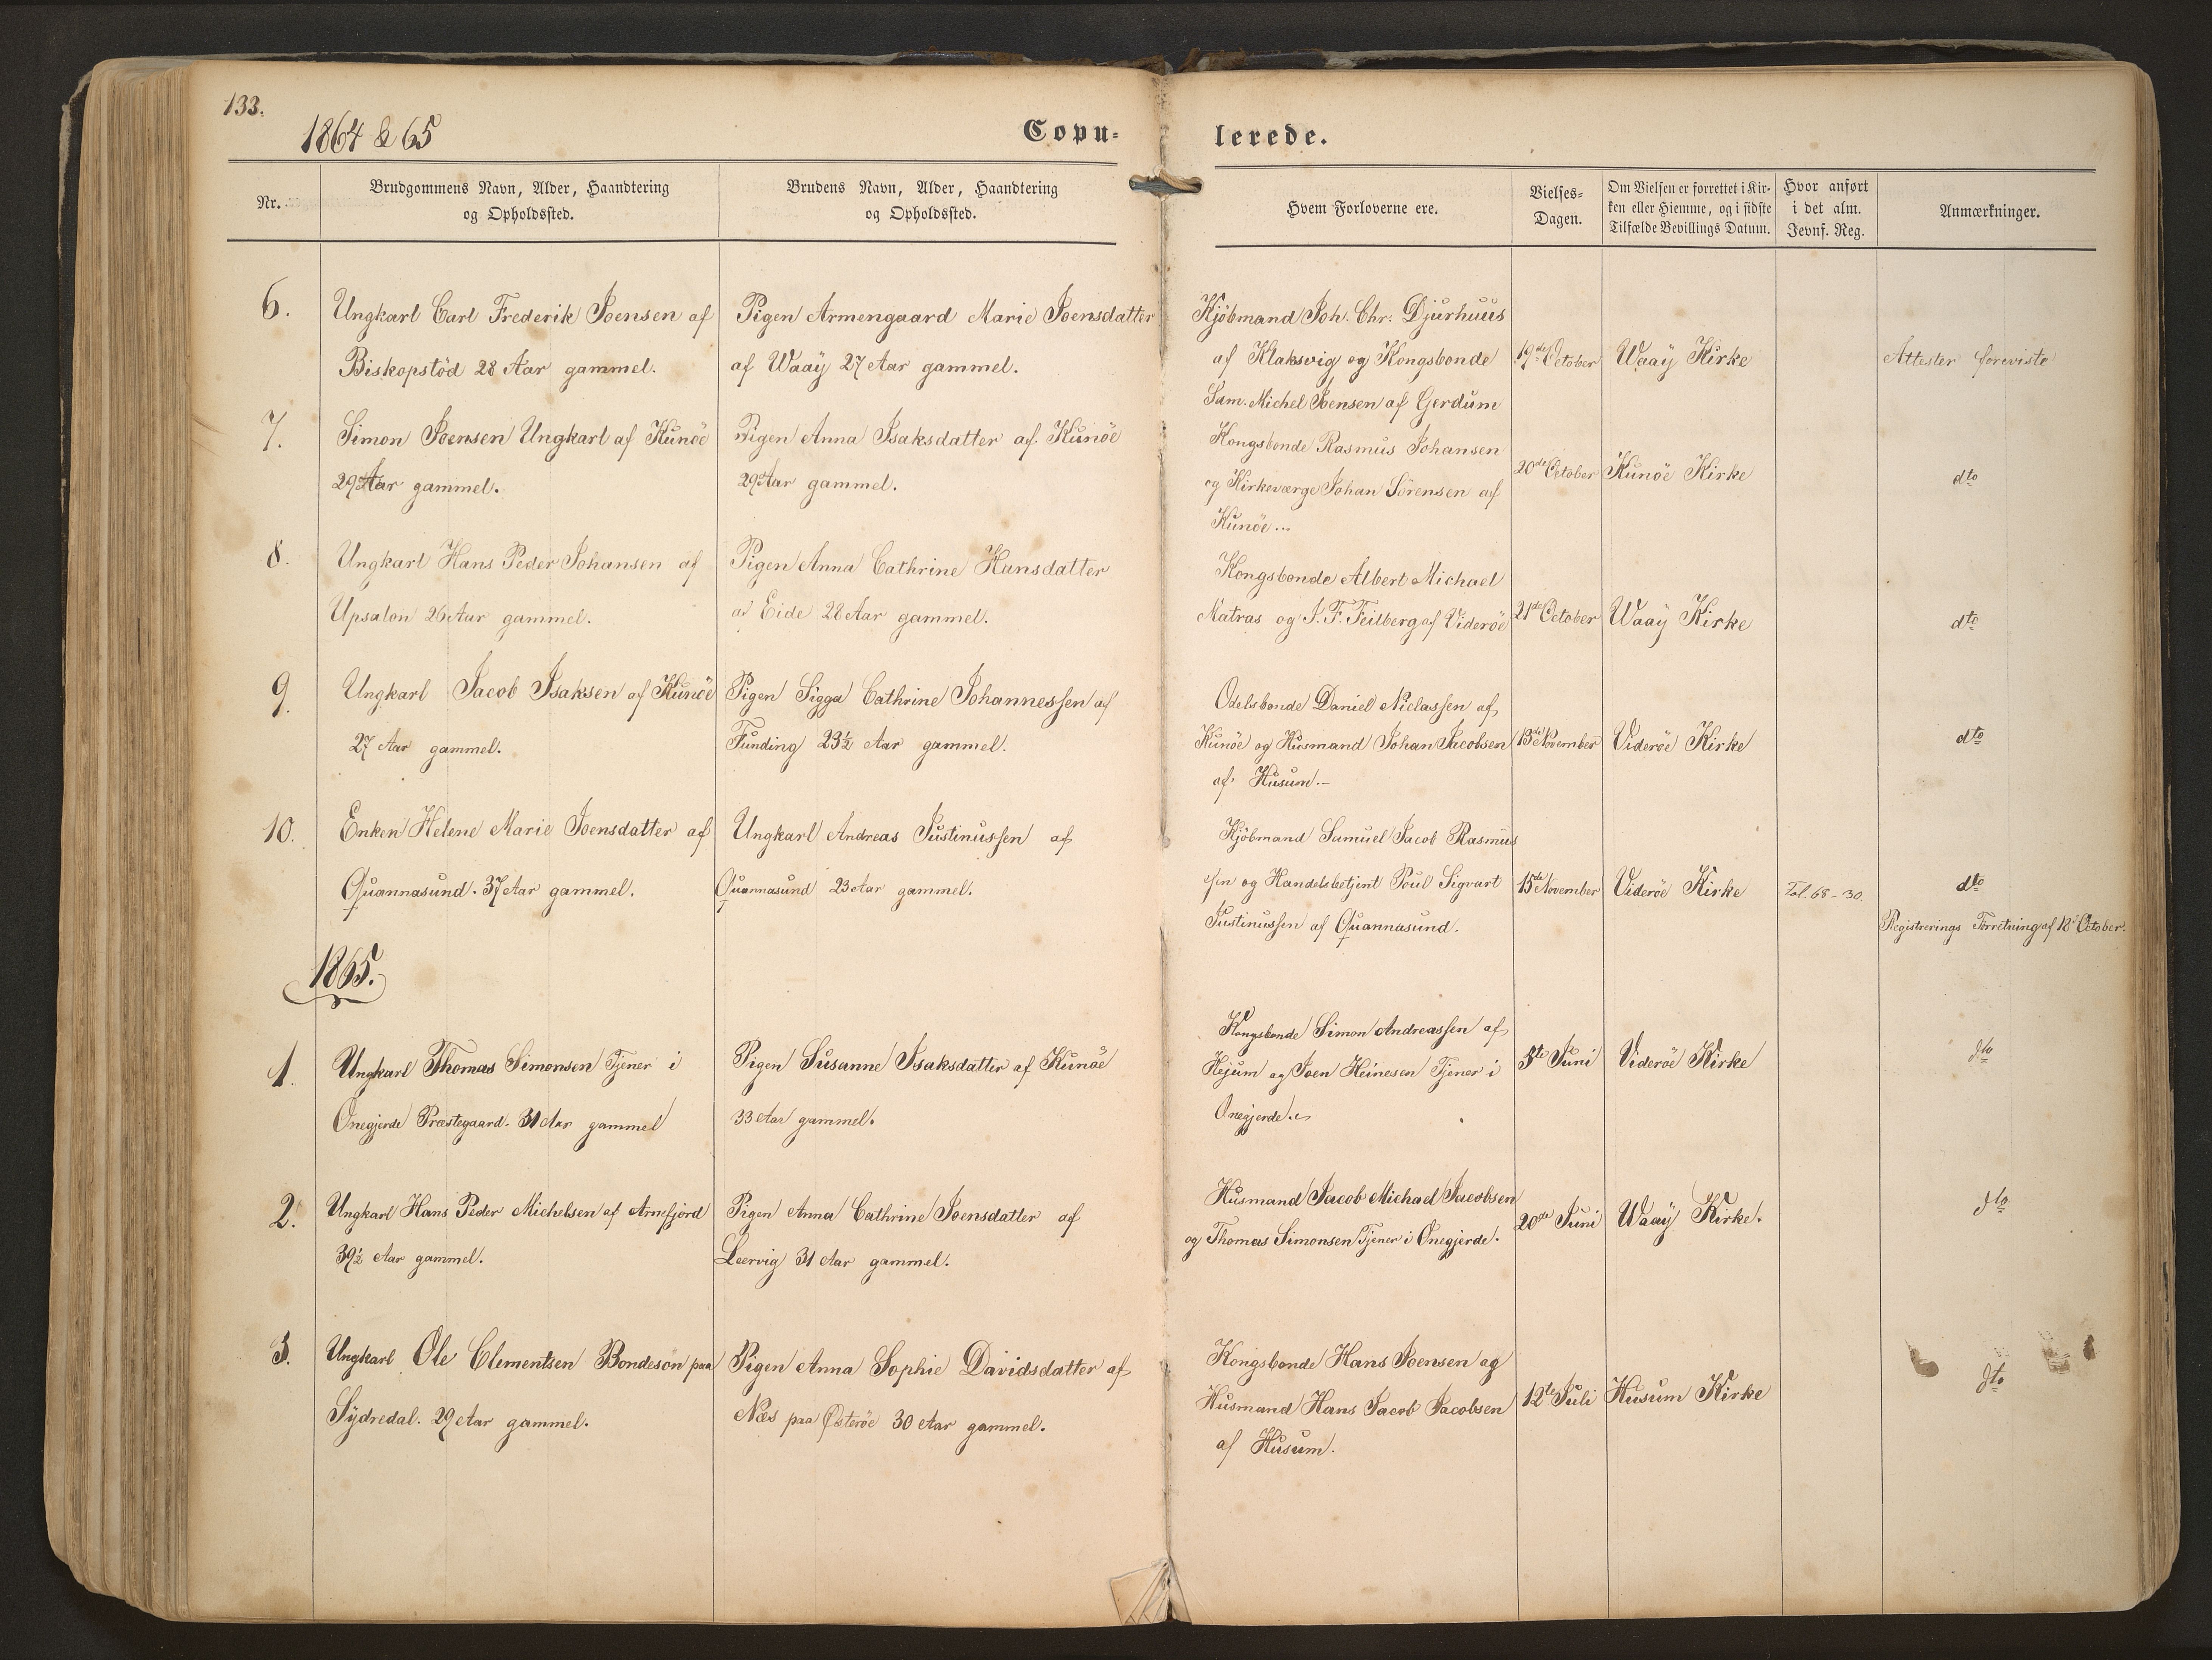 133.
1864 & 65
Copu-
lerede.
Nr.
Brudgommens Navn, Alder, Haandtering
og Opholdssted.
Brudens Navn, Alder, Haandtering
og Opholdssted.
Hvem Forloverne ere.
Vielses-
Dagen.
Om Vielsen er forrettet i Kir-
ken eller Hiemme, og i sidste
Tilfælde Bevillings Datum.
Hvor anført
i det alm.
Jevnf. Reg.
Anmærkninger.
6.
Ungkarl Carl Frederik Joensen af
Biskopstöd 28 Aar gammel.
Pigen Armengaard Marie Joensdatter
af Waaÿ 27 Aar gammel.
Kjöbmand Joh. Chr. Djurhuus
af Klaksvig og Kongsbonde
Sam. Michel Joensen af Gerdum
19de October
Waaÿ Kirke
Attester foreviste
7.
Simon Joensen Ungkarl af Kunöe
29 Aar gammel.
Pigen Anna Isaksdatter af Kunöe
29 Aar gammel.
Kongsbonde Rasmus Johansen
og Kirkeværge Johan Sörensen af
Kunöe...
20de October
Kunöe Kirke
dto
8.
Ungkarl Hans Peder Johansen af
Upsalon 26 Aar gammel.
Pigen Anna Cathrine Hansdatter
af Eide 28 Aar gammel.
Kongsbonde Albert Michael
Matras og J. F. Feilberg af Videröe
21de October
Waaÿ Kirke
dto
9.
Ungkarl Jacob Isaksen af Kunöe
27 Aar gammel.
Pigen Sigga Cathrine Johannessen af
Funding 23½ Aar gammel.
Odelsbonde Daniel Niclassen af
Kunöe og Husmand Johan Jacobsen
af Husum.-
13de November
Videröe Kirke
dto
10.
Enken Helene Marie Joensdatter af
Quannasund. 37 Aar gammel.
Ungkarl Andreas Justinussen af
Quannasund 23 Aar gammel.
Kjöbmand Samuel Jacob Rasmus
sen og Handelsbetjent Poul Sigvart
Justinussen af Quannasund.
15de November
Videröe Kirke
Fol. 68-30.
dto
Registrerings Forretning af 18d October.
1865.
1.
Ungkarl Thomas Simonsen Tjener i
Önegjerde Præstegaard. 31 Aar gammel
Pigen Susanne Isaksdatter af Kunöe
33 Aar gammel.
Kongsbonde Simon Andreassen af
Hejum og Joen Heinesen Tjener i
Önegjerde.
5te Juni
Videröe Kirke
dto
2.
Ungkarl Hans Peder Michelsen af Arnefjord
39½ Aar gammel.
Pigen Anna Cathrine Joensdatter af
Leervig 31 Aar gammel.
Husmand Jacob Michael Jacobsen
og Thomas Simonsen Tjener i Önegjerde.
20de Juni
Waaÿ Kirke.
dto
3.
Ungkarl Ole Clementsen Bondesön paa
Sÿdredal. 29 Aar gammel.
Pigen Anna Sophie Davidsdatter af
Næs paa Østeröe 30 Aar gammel.
Kongsbonde Hans Joensen og
Husmand Hans Jacob Jacobsen
af Husum.
12te Juli
Husum Kirke
dto